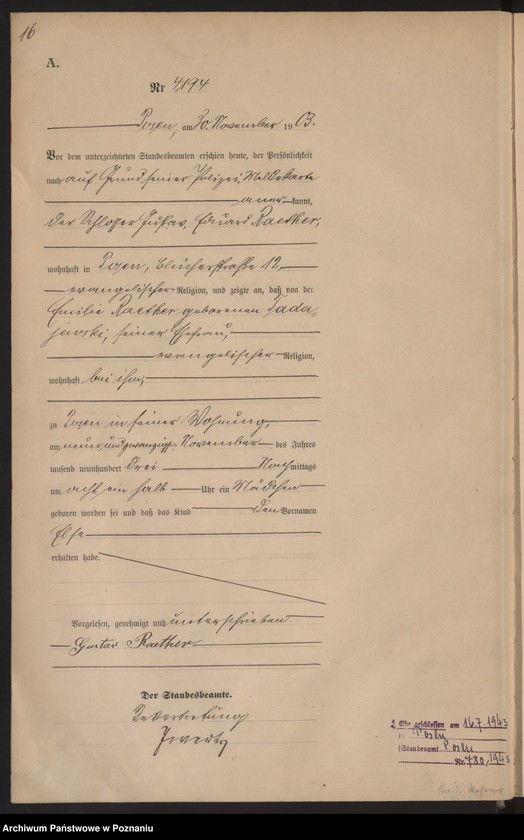 16
A.
Nr 4194
Posen, am 30. November 1903.
Vor dem unterzeichneten Standesbeamten erschien heute, der Persönlichkeit
nach auf Grund seiner Polizei, Meldekarte
anerkannt,
der Schlosser Gustav, Eduard Raether,
wohnhaft in Posen, Blücherstrasse 12
evangelischer Religion, und zeigte an, daß von der
Emilie Raether geborenen
seiner Ehefrau,
evangelischer Religion,
wohnhaft bei ihm,
zu Posen in seiner Wohnung,
am neunundzwanzigsten November des Jahres
tausend neunhundert drei Nachmittags
um acht ein halb Uhr ein Mädchen
geboren worden sei und daß das Kind den Vornamen
Else
erhalten habe.
Vorgelesen, genehmigt und unterschrieben.
Gustav Raether
Der Standesbeamte.
In Vertretung
2. Ehe geschlossen am 16.7.1943
in Posen
(Standesamt Posen
Nr. 780/1943
Archiwum Państwowe w Poznaniu